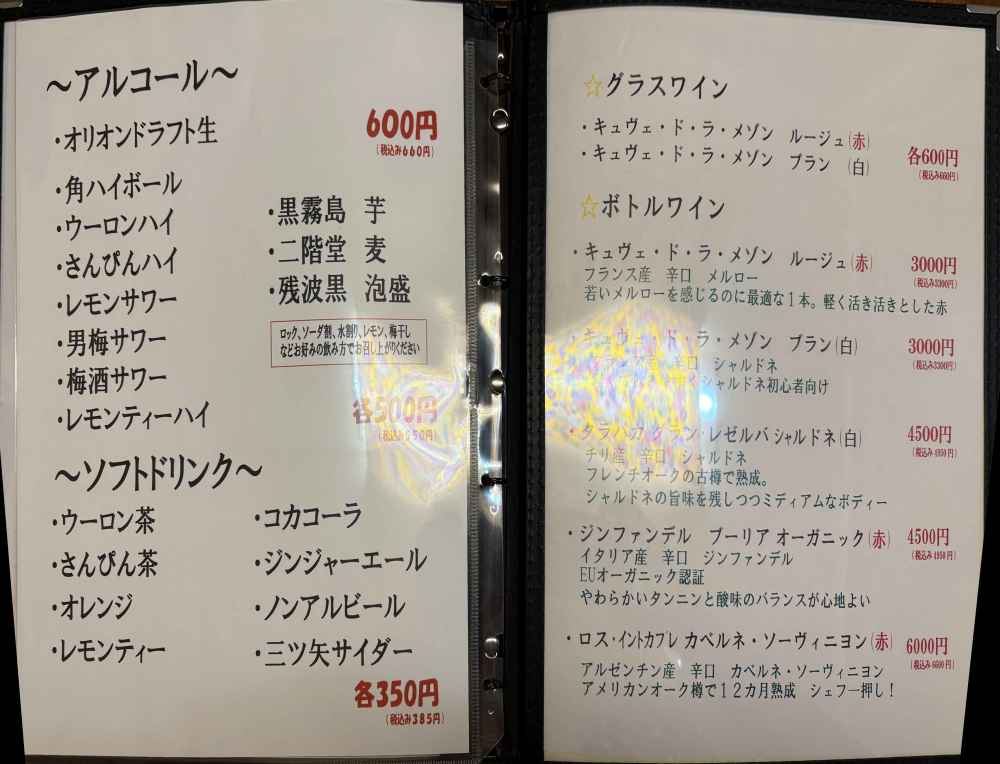 ～アルコール～
・オリオンドラフト生
600円
(税込み660円)
・角ハイボール
・ウーロンハイ
・さんぴんハイ
・レモンサワー
・男梅サワー
・梅酒サワー
・レモンティーハイ
・黒霧島 芋
・二階堂 麦
・残波黒 泡盛
ロック、ソーダ割、水割り、レモン、梅干し
などお好みの飲み方でお召し上がりください
各500円
(税込み550円)
～ソフトドリンク～
・ウーロン茶
・さんぴん茶
・オレンジ
・レモンティー
・コカコーラ
・ジンジャーエール
・ノンアルビール
・三ツ矢サイダー
各350円
(税込み385円)
☆グラスワイン
・キュヴェ・ド・ラ・メゾン ルージュ(赤)
・キュヴェ・ド・ラ・メゾン ブラン (白)
各600円
(税込み660円)
☆ボトルワイン
・キュヴェ・ド・ラ・メゾン ルージュ(赤) 3000円
(税込み3300円)
フランス産 辛口 メルロー
若いメルローを感じるのに最適な１本。軽く活き活きとした赤
キュヴェ・ド・ラ・メゾン ブラン(白) 3000円
(税込み3300円)
辛口 シャルドネ
シャルドネ初心者向け
・タラパカ グラン・レゼルバ シャルドネ(白) 4500円
(税込み4950円)
チリ産 辛口 シャルドネ
フレンチオークの古樽で熟成。
シャルドネの旨味を残しつつミディアムなボディー
・ジンファンデル プーリア オーガニック(赤) 4500円
(税込み4950円)
イタリア産 辛口 ジンファンデル
EUオーガニック認証
やわらかいタンニンと酸味のバランスが心地よい
・ロス・イントカブレ カベルネ・ソーヴィニヨン(赤) 6000円
(税込み6600円)
アルゼンチン産 辛口 カベルネ・ソーヴィニヨン
アメリカンオーク樽で１２カ月熟成 シェフ一押し！